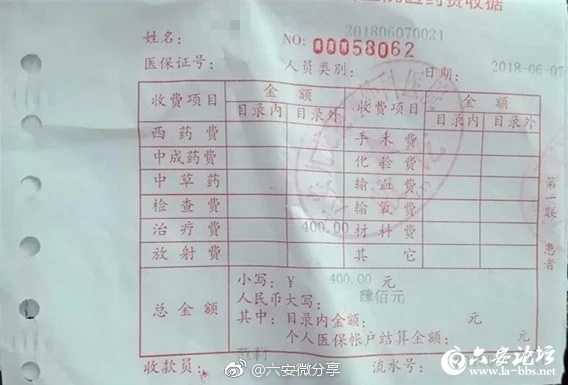 医药费收据
姓名: 201806070021
NO: 00058062
医保证号: 人员类别: 日期: 2018-06-07
收费项目 金额 收费项目 金额
目录内 目录外 目录内 目录外
西药费 手术费
中成药费 化验费
中草药 输血费
检查费 输氧费
治疗费 400.00 材料费
放射费 其它
第一联 患者
总金额
小写: ¥ 400.00 元
人民币大写: 肆佰元
其中: 目录内金额: 元
个人医保帐户结算金额: 元
收款员: 流水号:
@六安微分享
六安论坛
www.la-bbs.net